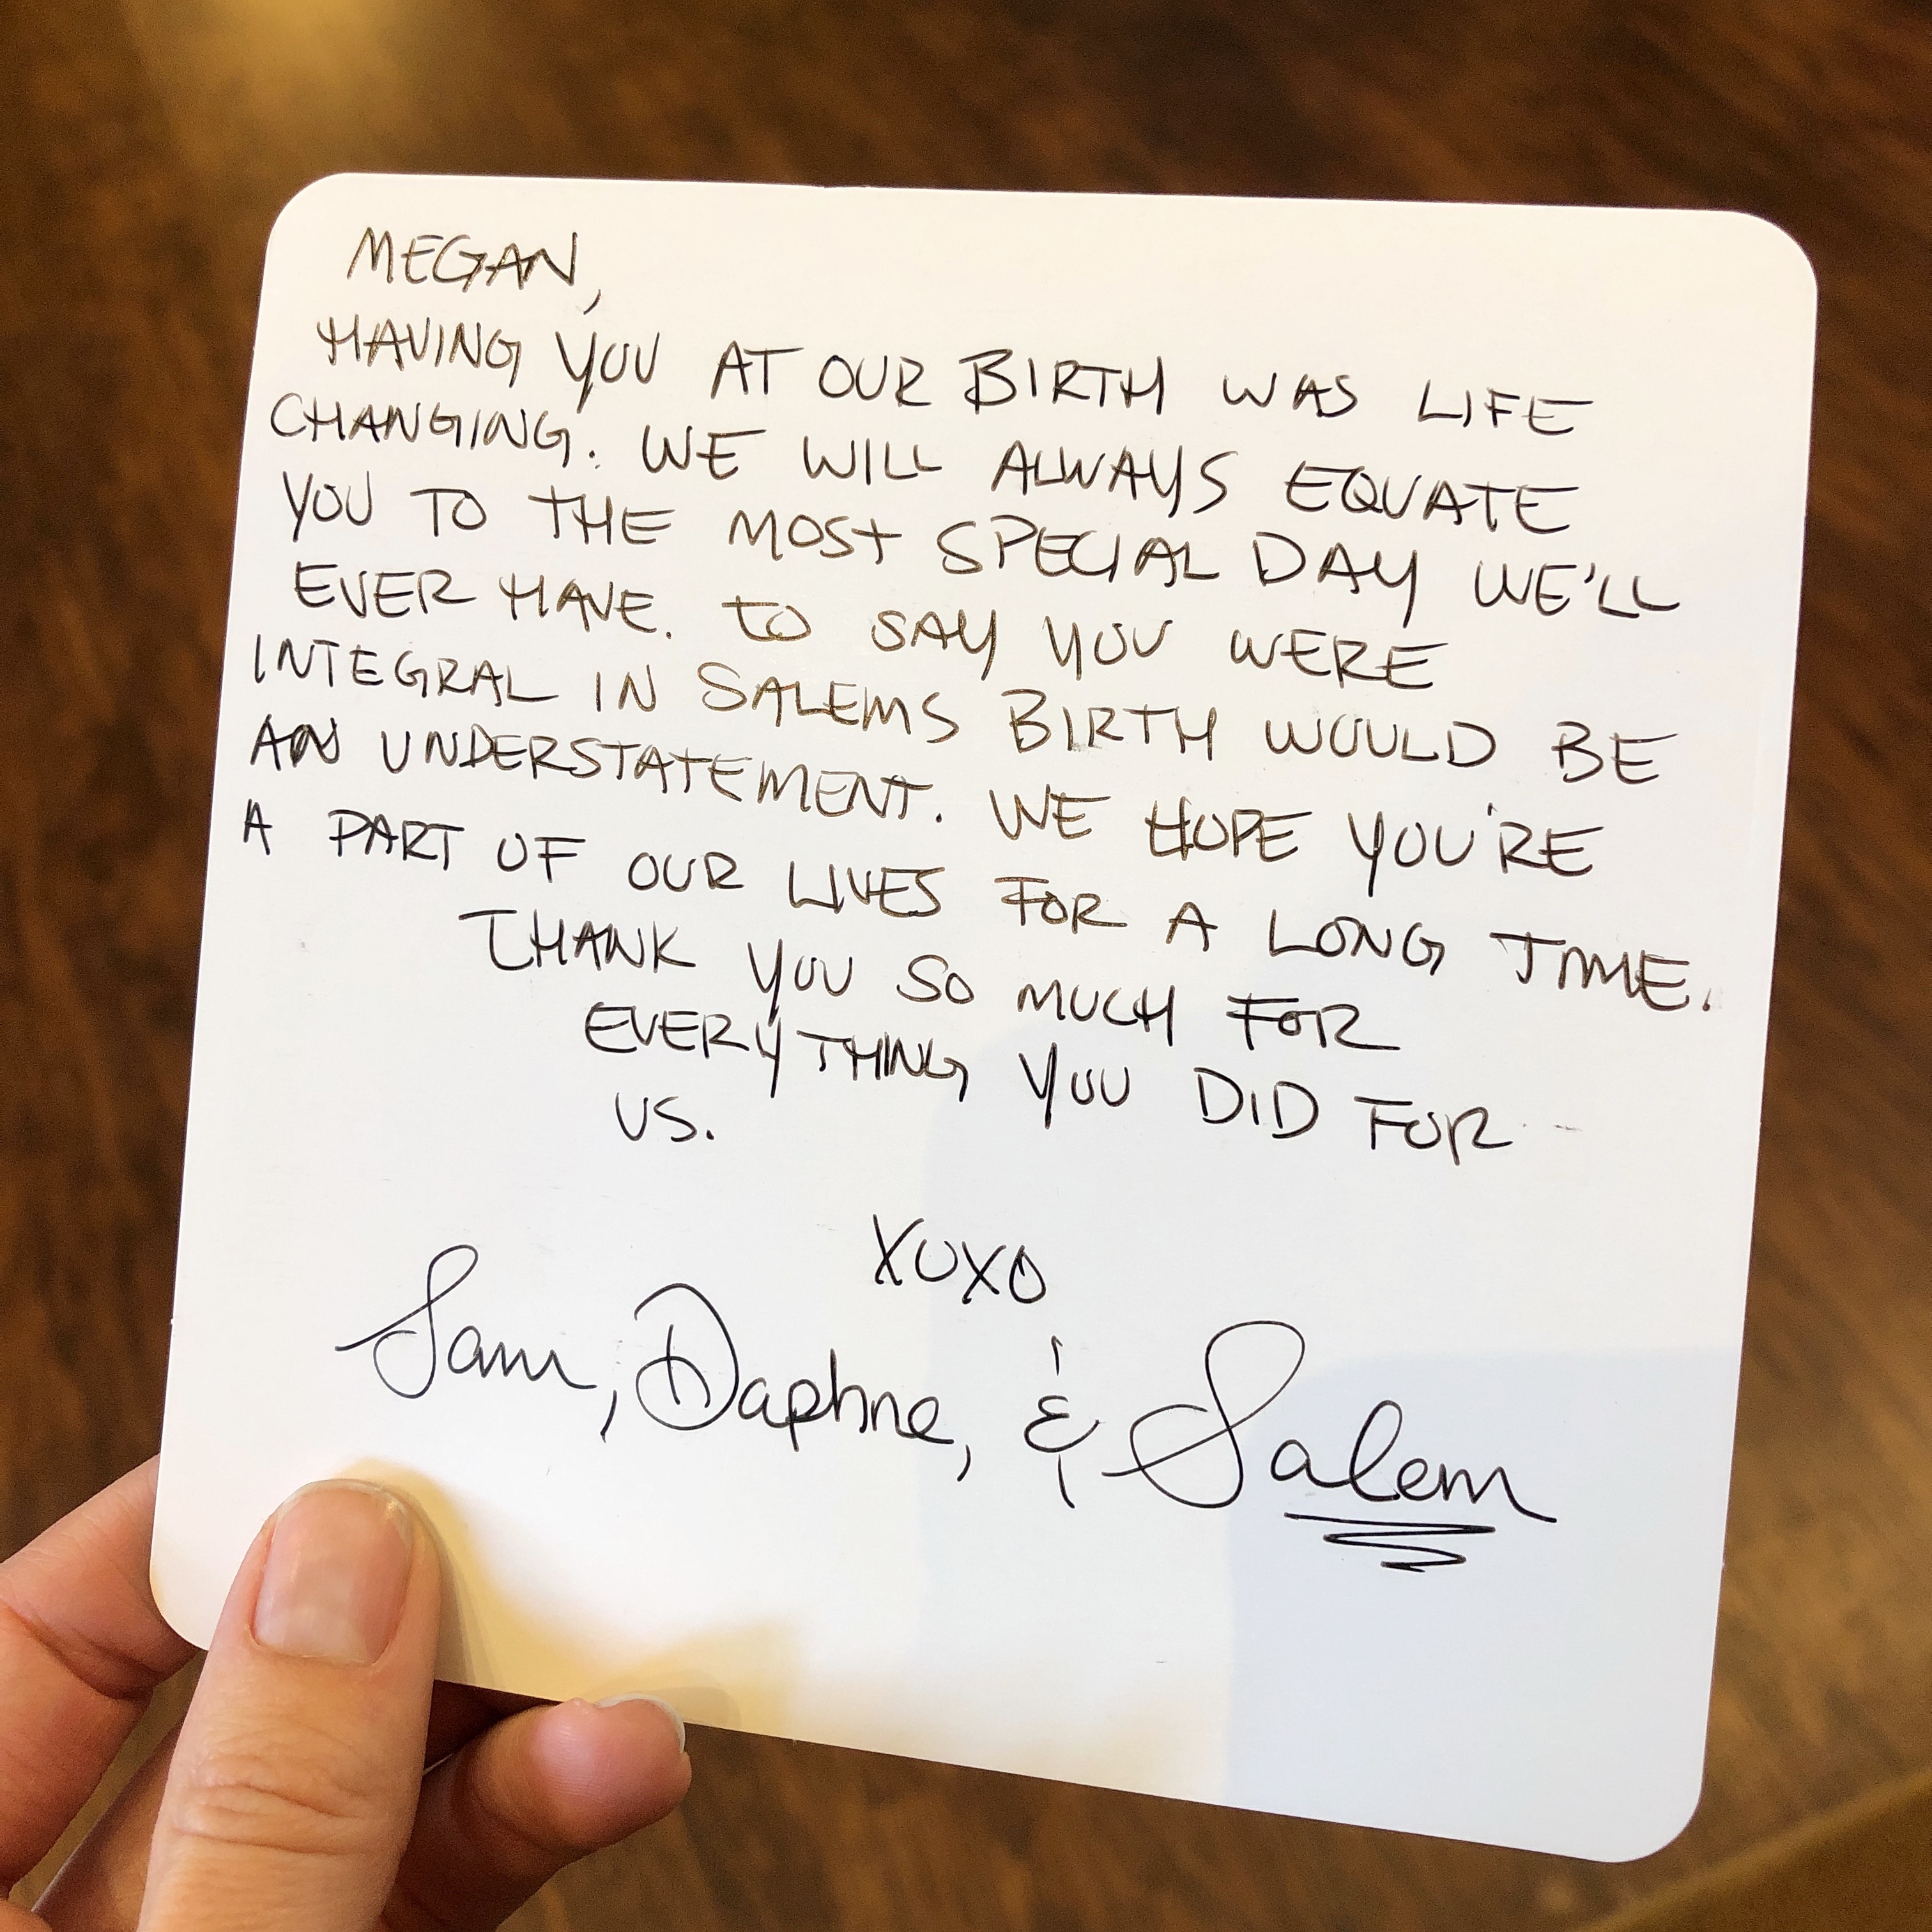 MEGAN,
HAVING YOU AT OUR BIRTH WAS LIFE
CHANGING. WE WILL ALWAYS EQUATE
YOU TO THE MOST SPECIAL DAY WE'LL
EVER HAVE. TO SAY YOU WERE
INTEGRAL IN SALEMS BIRTH WOULD BE
AN UNDERSTATEMENT. WE HOPE YOU'RE
A PART OF OUR LIVES FOR A LONG TIME.
THANK YOU SO MUCH FOR
EVERYTHING YOU DID FOR
US.
XOXO
Sam, Daphne, & Salem